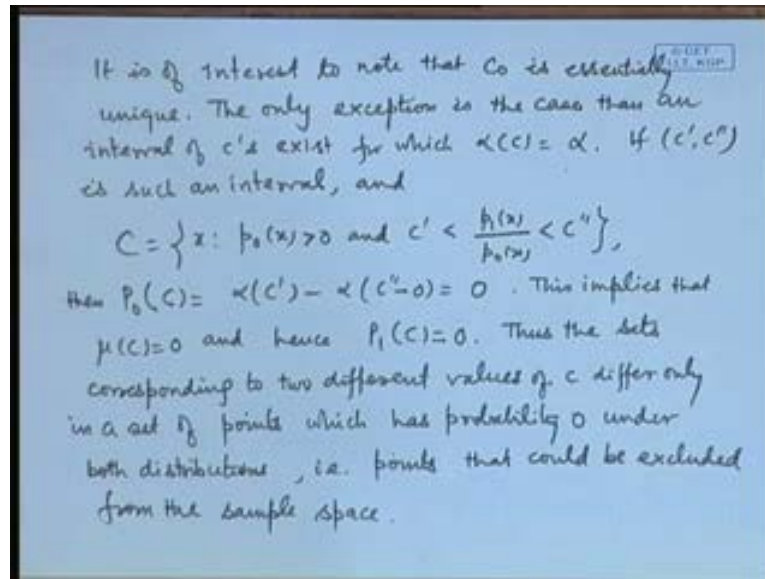 It is of interest to note that C₀ is essentially
unique. The only exception is the case than an
interval of c's exist for which α(c) = α. If (c', c'')
is such an interval, and
C = {x: p₀(x)>0 and c' < p₁(x)/p₀(x) < c''},
then P₀(C) = α(c') − α(c''−0) = 0. This implies that
μ(C)=0 and hence P₁(C)=0. Thus the sets
corresponding to two different values of c differ only
in a set of points which has probability 0 under
both distributions, i.e. points that could be excluded
from the sample space.